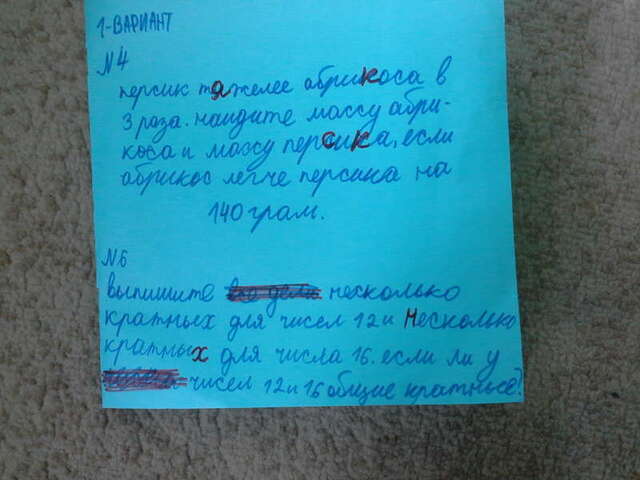 1-ВАРИАНТ
N4
персик тажелее абрикоса в
3 раза. наидите массу абри-
коса и массу персика, если
абрикос легче персика на
140 грам.
N6
выпишите несколько
кратных для чисел 12 и несколько
кратных для числа 16. если ли у
чисел 12 и 16 общие кратные?